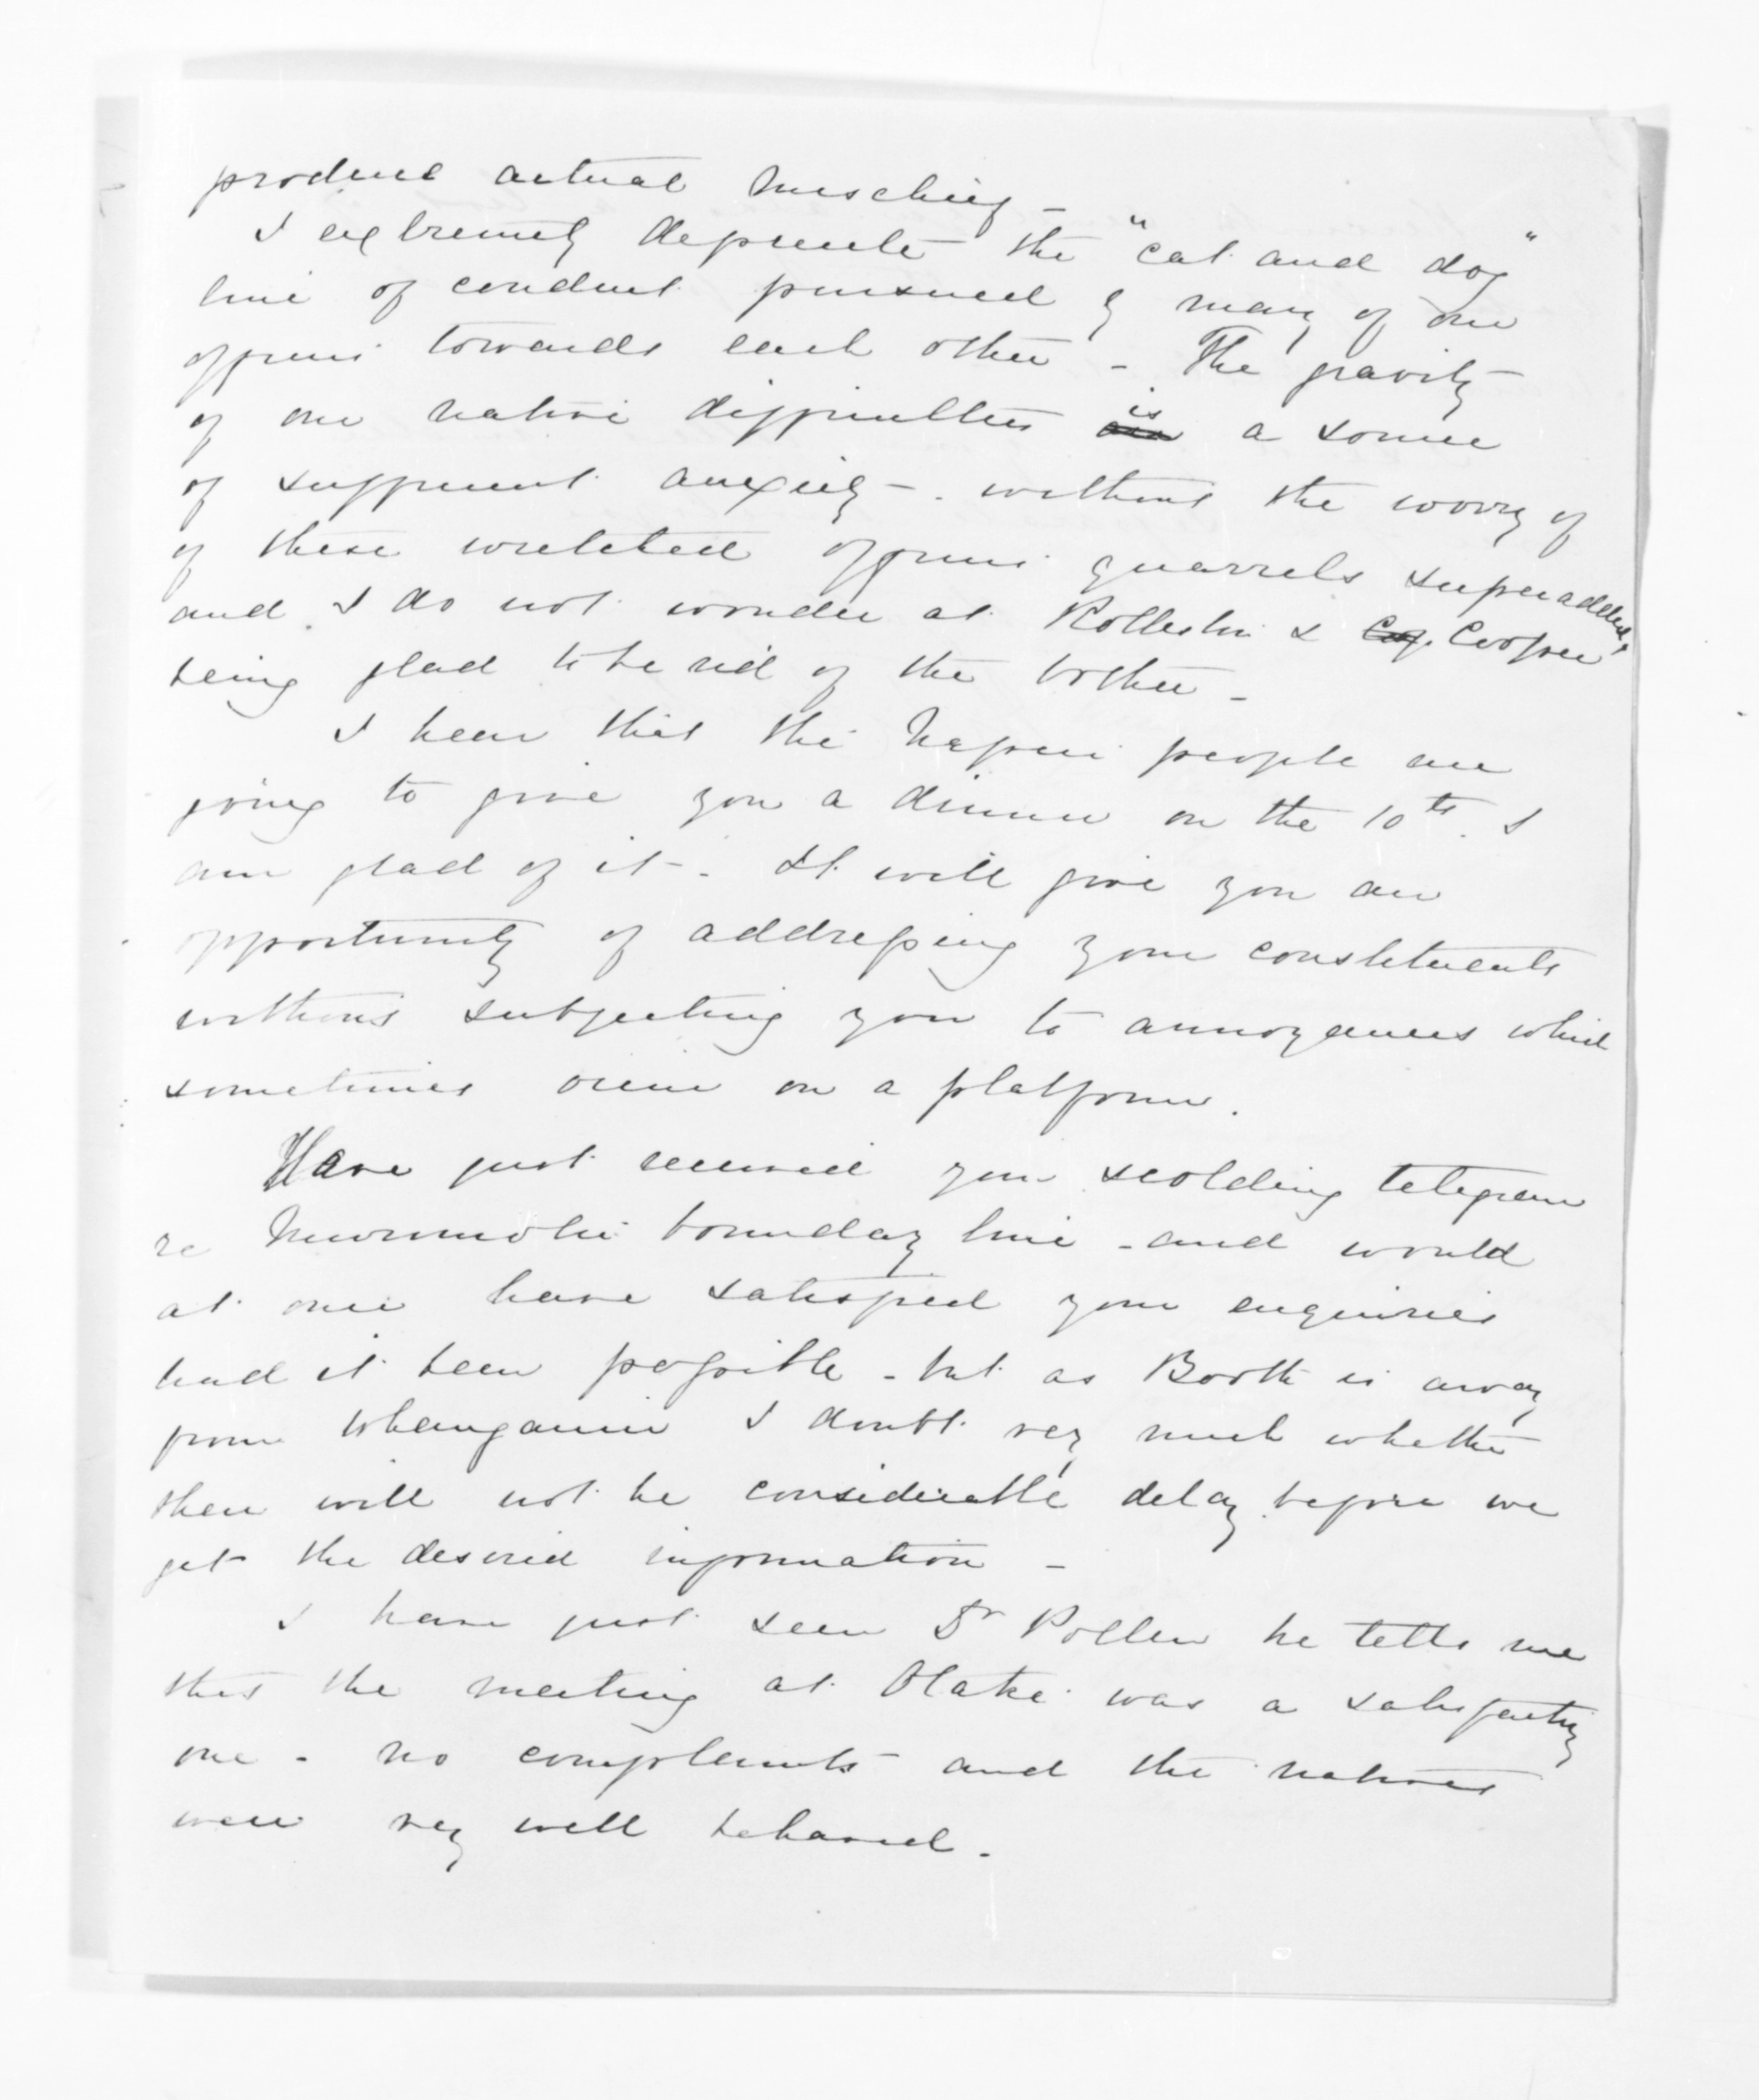 produce actual mischief -
I extremely deprecate the "cat and dog"
line of conduct pursued by many of our
officers towards each other - The gravity
of our native difficulties is a source
of sufficient anxiety - without the worry of
of these wretched officers quarrels superadded
and I do not wonder at Rolleston & Cooper
being glad to be rid of the bother -
I hear that the Napier people are
going to give you a dinner on the 10th. I
am glad of it - It will give you an
opportunity of addressing your constituents
without subjecting you to annoyances which
sometimes occur on a platform.
Have just received your scolding telegram
re Murimotu boundary line - and would
at once have satisfied your enquiries
had it been possible - but as Booth is away
from Whanganui I doubt very much whether
there will not be considerable delay before we
get the desired information -
I have just seen Dr Pollen he tells me
that the meeting at Otaki was a satisfactory
one - no complaints and the natives
were very well behaved.